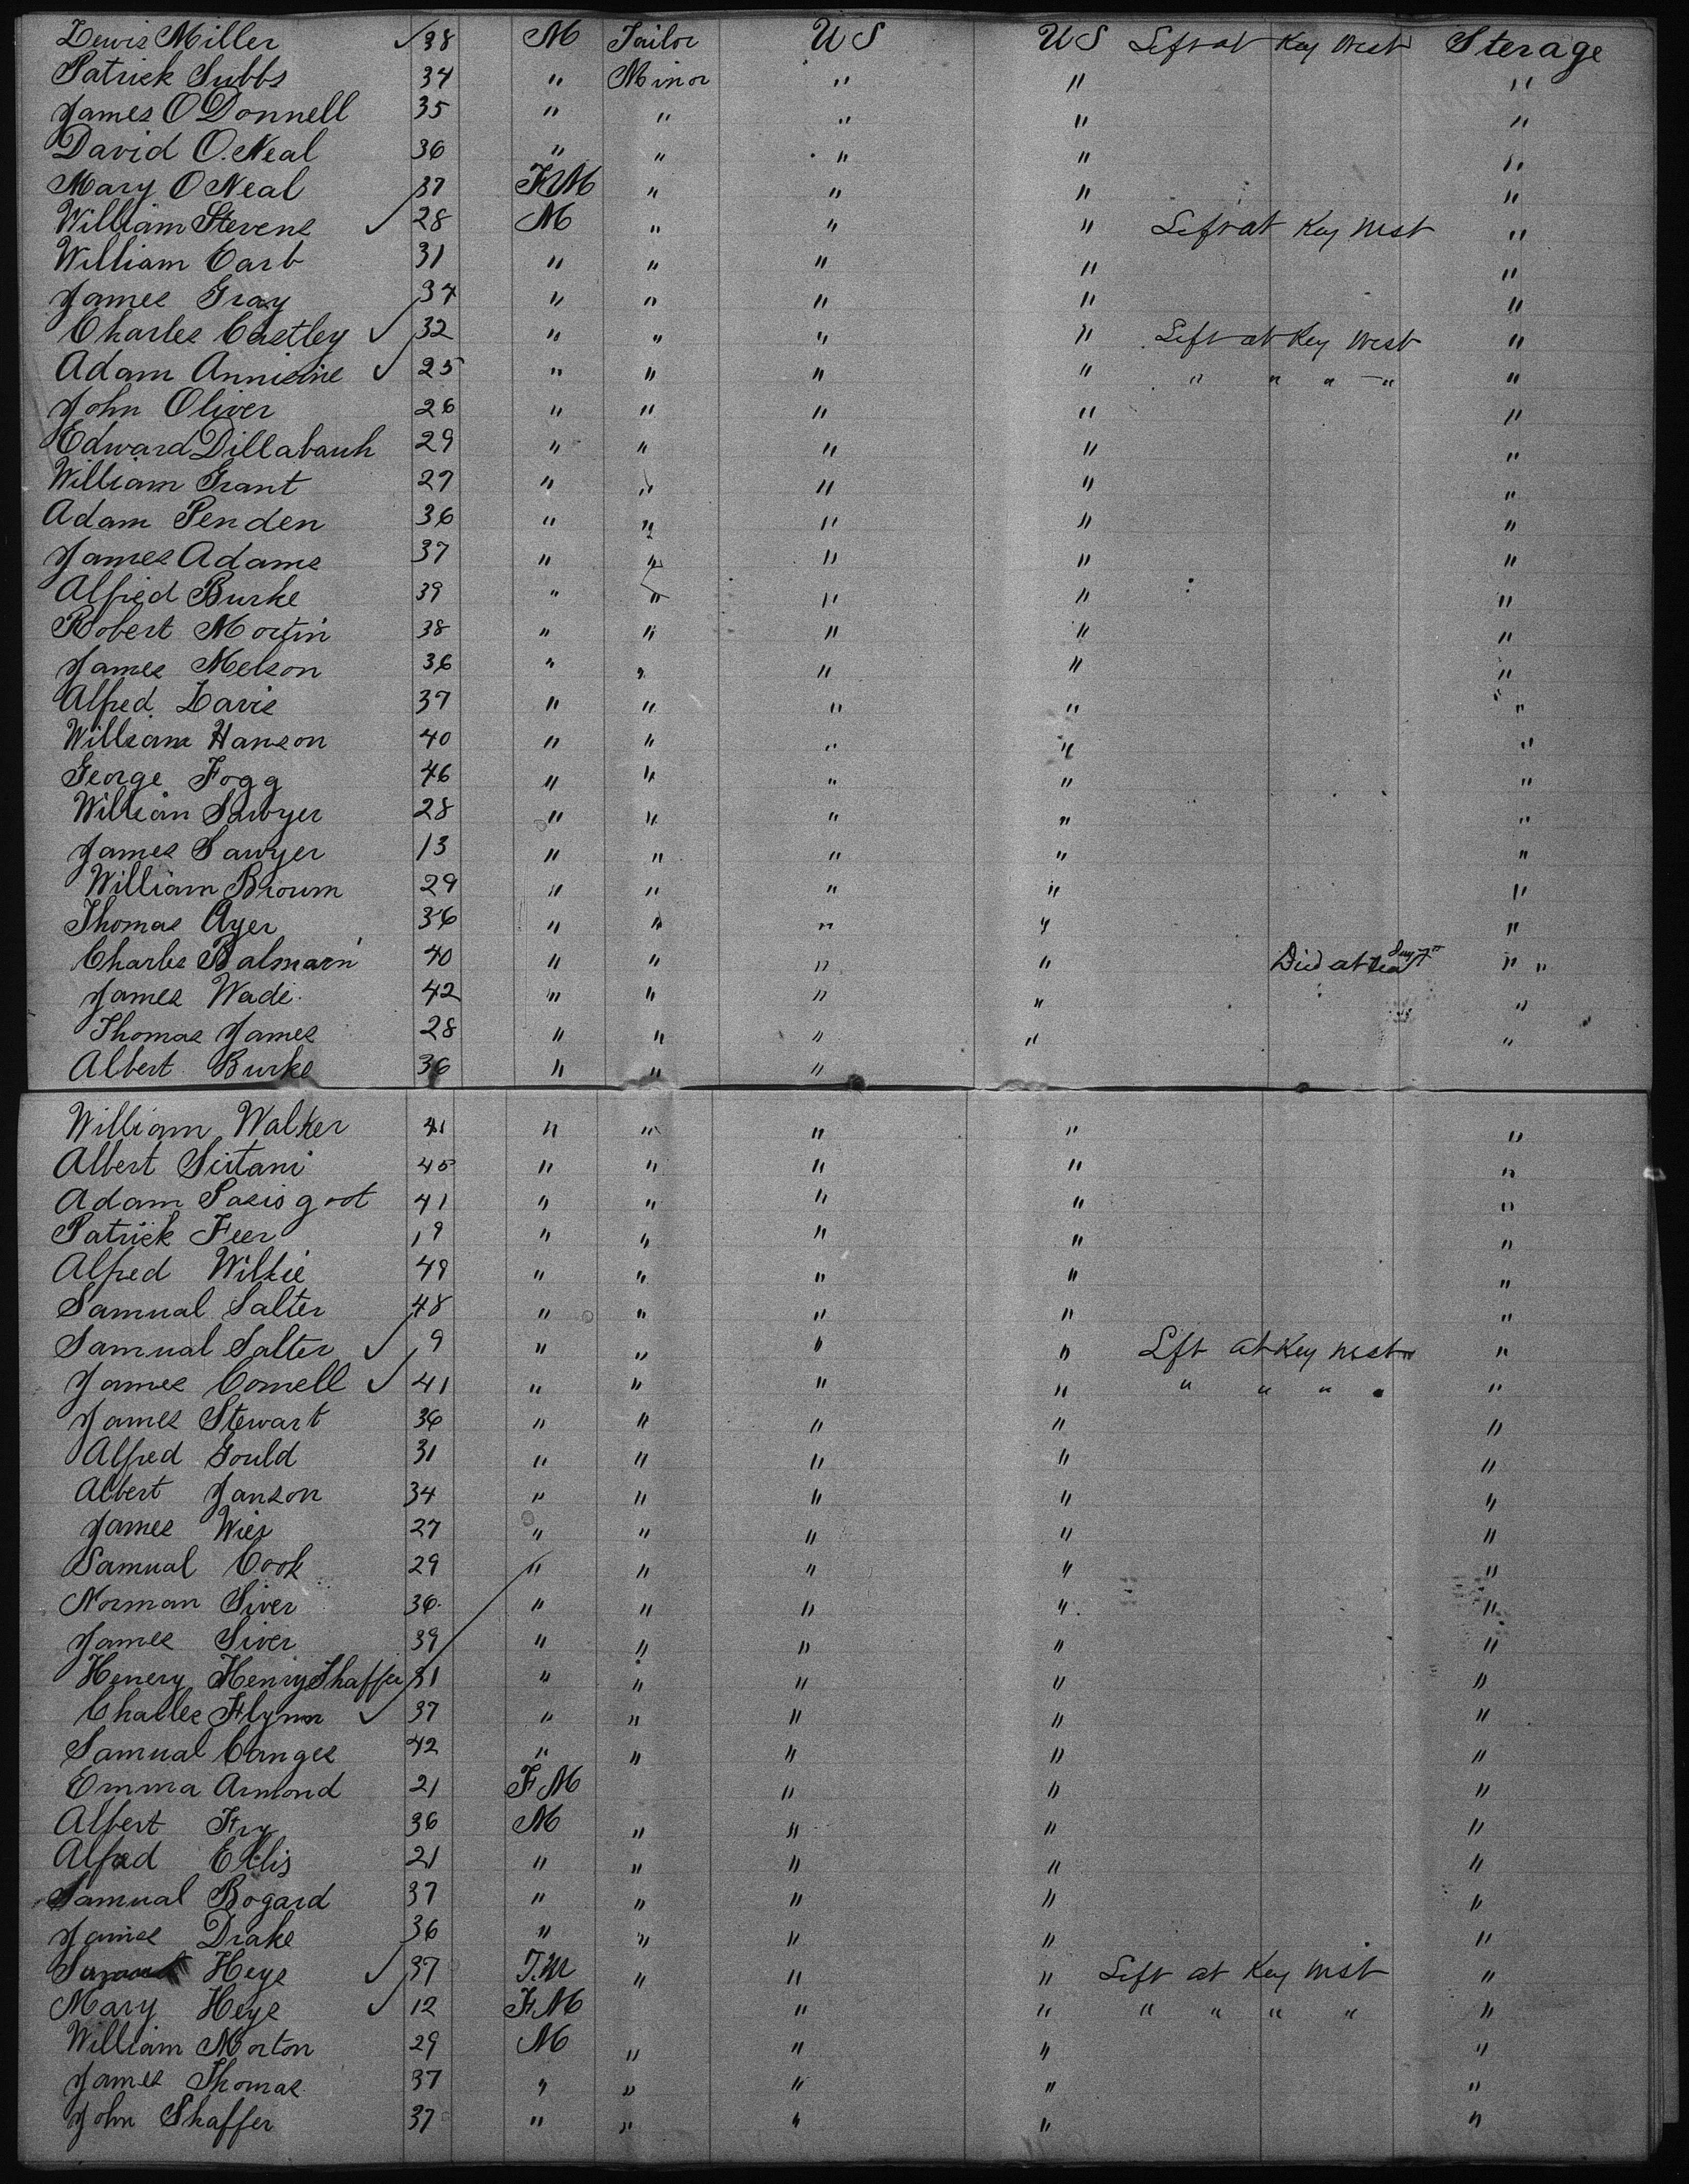 Lewis Miller ✓ 38 M Tailor U S U S Left at Key West Sterage
Patrick Tubbs 34 " Minor " " "
James O Donnell 35 " " " " "
David O. Neal 36 " " " " "
Mary O Neal 37 FM " " " "
William Stevens ✓ 28 M " " " Left at Key West "
William Carb 31 " " " " "
James Gray 34 " " " " "
Charles Castley ✓ 32 " " " " Left at Key West "
Adam ✓ 25 " " " " " " " " "
John Oliver 26 " " " " "
Edward Dillabauh 29 " " " " "
William Grant 27 " " " " "
Adam Penden 36 " " " " "
James Adams 37 " " " " "
Alfred Burke 39 " " " " "
Robert Mortin 38 " " " " "
James Melson 36 " " " " "
Alfred Davis 37 " " " " "
William Hanson 40 " " " " "
George Fogg 46 " " " " "
William Sawyer 28 " " " " "
James Sawyer 13 " " " " "
William Broum 29 " " " " "
Thomas Ayer 36 " " " " "
Charles Balmain 40 " " " " Died at Sea " "
James Wade 42 " " " " "
Thomas James 28 " " " " "
Albert Burke 36 " " "
William Walker 41 " " " " "
Albert 45 " " " " "
Adam 41 " " " " "
Patrick Feer 19 " " " " "
Alfred Wilkie 49 " " " " "
Samual Salter 48 " " " " "
Samual Salter ✓ 9 " " " " Left at Key West "
James Cornell ✓ 41 " " " " " " " "
James Stewart 36 " " " " "
Alfred Gould 31 " " " " "
Albert Janson 34 " " " " "
James Wier 27 " " " " "
Samual Cook 29 " " " " "
Norman Siver 36 " " " " "
James Siver 39 " " " " "
Henery Henry Shaffer 31 " " " " "
Charles Flynn ✓ 37 " " " " "
Samual Canges 42 " " " " "
Emma Armond 21 FM " " "
Albert Fry 36 M " " " "
Alfred Ellis 21 " " " " "
Samual Bogard 37 " " " " "
James Drake 36 " " " " "
Heys ✓ 37 F.M " " " Left at Key West "
Mary Heys ✓ 12 F.M " " " " " " "
William Morton 29 M " " " "
James Thomas 37 " " " " "
John Shaffer 37 " " " " "